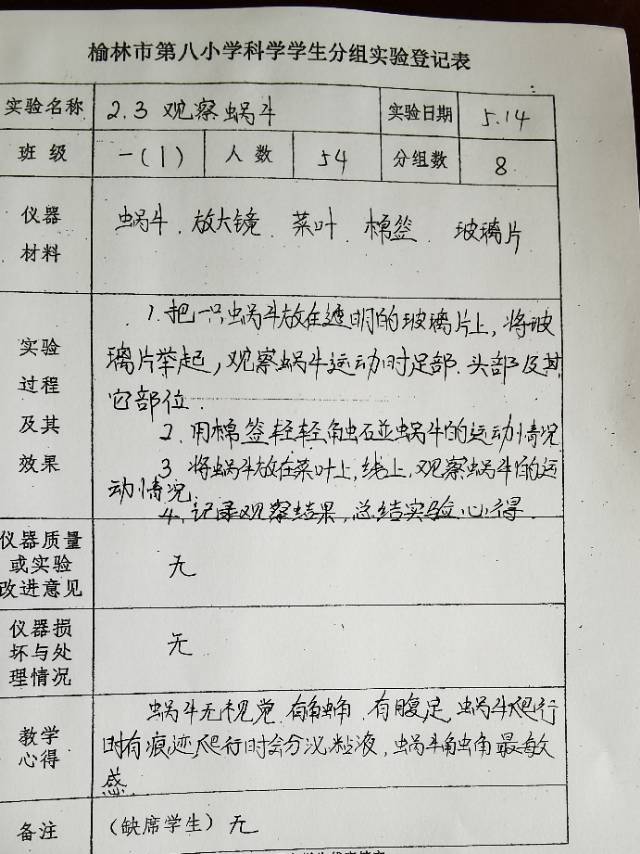 榆林市第八小学科学学生分组实验登记表
实验名称 2.3 观察蜗牛 实验日期 5.14
班级 一(1) 人数 54 分组数 8
仪器材料 蜗牛、放大镜、菜叶、棉签、玻璃片
实验过程及其效果
1. 把一只蜗牛放在透明的玻璃片上,将玻
璃片举起,观察蜗牛运动时足部、头部及其
它部位
2. 用棉签轻轻触碰蜗牛的运动情况
3 将蜗牛放在菜叶上,线上,观察蜗牛的运
动情况
4. 记录观察结果,总结实验心得.
仪器质量或实验改进意见 无
仪器损坏与处理情况 无
教学心得
蜗牛无视觉、有触角、有腹足,蜗牛爬行
时有痕迹爬行时会分泌粘液,蜗牛触角最敏
感.
备注 (缺席学生) 无